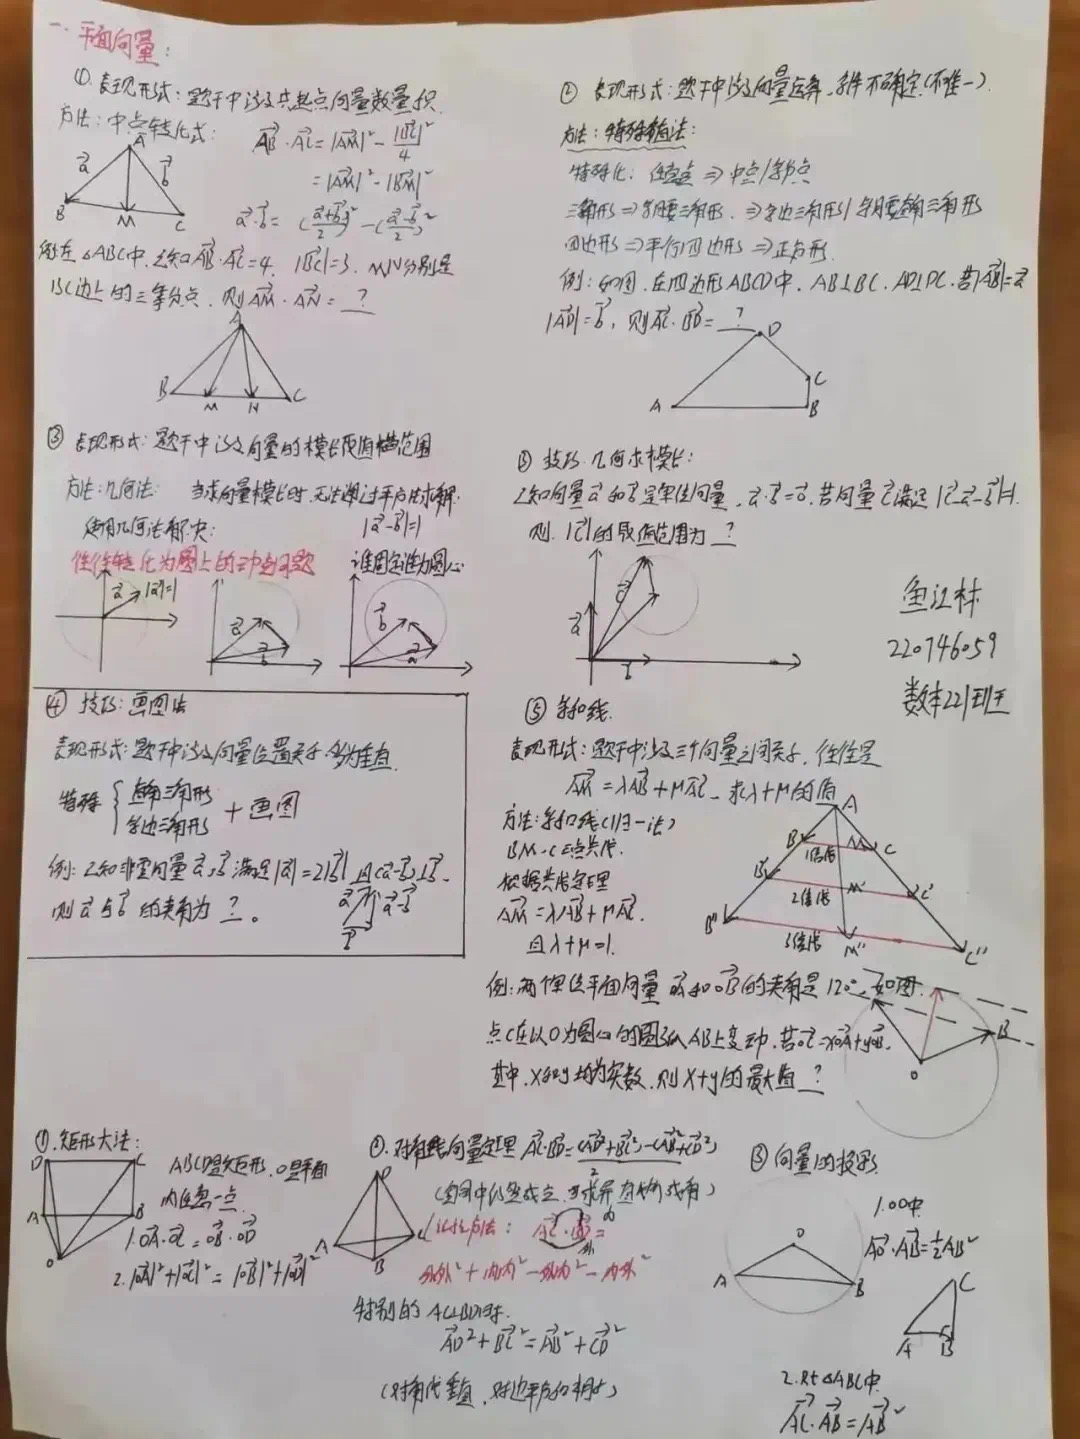 一. 平面向量:
①. 表现形式: 题干中涉及共起点向量数量积
方法: 中点转化式:
A
a⃗
b⃗
B
M
C
AB⃗·AC⃗=|AM⃗|²-|BC⃗|²/4
=|AM⃗|²-|BM⃗|²
a⃗·b⃗=(a⃗+b⃗/2)²-(a⃗-b⃗/2)²
例:在△ABC中,已知AB⃗·AC⃗=4, |BC⃗|=3, M、N分别是
BC边上的三等分点, 则AM⃗·AN⃗=?
A
B
M
N
C
② 表现形式: 题干中涉及向量运算, 条件不确定(不唯一).
方法: 特殊值法:
特殊化: 任意点⇒中点/等分点
三角形⇒等腰三角形⇒等边三角形/等腰直角三角形
四边形⇒平行四边形⇒正方形.
例: 如图, 在四边形ABCD中, AB⊥BC, AD⊥DC, 若|AB⃗|=a⃗
|AD⃗|=b⃗, 则AC⃗·BD⃗=?
D
C
A
B
③ 表现形式: 题干中涉及向量的模长取值范围
方法: 几何法: 当求向量模长时, 无法通过平方法求解.
使用几何法解决: |a⃗-b⃗|=1
往往转化为圆上的动点问题 谁固定谁为圆心
a⃗ |a⃗|=1
a⃗
b⃗
b⃗
a⃗
③ 技巧: 几何求模长:
已知向量a⃗和b⃗是单位向量, a⃗·b⃗=0, 若向量c⃗满足|c⃗-a⃗-b⃗|=1.
则, |c⃗|的取值范围为?
c⃗
a⃗
b⃗
鱼江林
220746059
数本221班
④ 技巧: 画图法
表现形式: 题干中涉及向量位置关系, 多为垂直.
特殊{直角三角形
等边三角形 + 画图
例: 已知非零向量a⃗,b⃗满足|a⃗|=2|b⃗|, 且(a⃗-b⃗)⊥b⃗,
则a⃗与b⃗的夹角为?。
a⃗ a⃗-b⃗
b⃗
⑤ 等和线.
表现形式: 题干中涉及三个向量之间关系, 往往是
AM⃗=λAB⃗+μAC⃗, 求λ+μ的值
方法: 等和线(归一法)
B M、C三点共线.
根据共线定理
AM⃗=λAB⃗+μAC⃗.
且λ+μ=1.
A
B
M
C
1倍线
B'
M'
C'
2倍线
B''
3倍线
M''
C''
例: 两个单位平面向量OA⃗和OB⃗的夹角是120°, 如图.
点C在以O为圆心的圆弧AB上变动, 若OC⃗=xOA⃗+yOB⃗,
其中, x和y均为实数, 则x+y的最大值?
B
O
①. 矩形大法:
D
C
A
B
O
ABCD是矩形, O是平面
内任意一点.
1. OA⃗·OC⃗=OB⃗·OD⃗
2. |OA⃗|²+|OC⃗|²=|OB⃗|²+|OD⃗|²
②. 对角线向量定理 AC⃗·BD⃗=(AD⃗²+BC⃗²)-(AB⃗²+CD⃗²)/2
D
A
B
C
记忆方法: AC⃗·BD⃗=
内
外
外外²+内内²-外内²-内外²
特别的AC⊥BD时.
AD⃗²+BC⃗²=AB⃗²+CD⃗²
(对角线垂直, 对边平方和相等)
③ 向量的投影
O
A
B
1. ⊙O中.
AO⃗·AB⃗=½AB²
C
A
B
2. Rt△ABC中.
AC⃗·AB⃗=AB⃗²